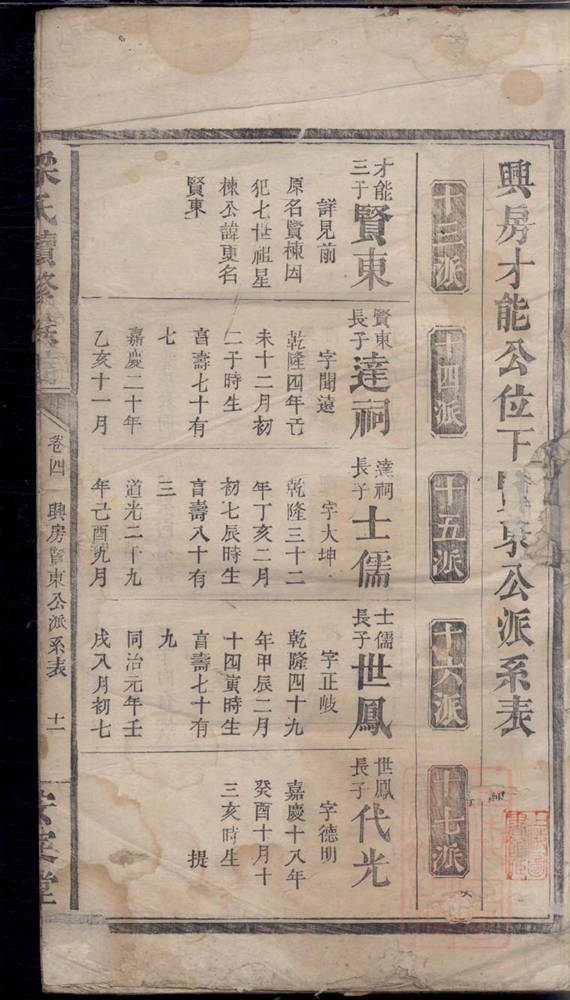 興房才能公位下賢東公派系表
十三派
十四派
十五派
十六派
十七派
才能
三子
賢東
詳見前
原名賢棟因
犯七世祖星
棟公諱更名
賢東
賢東
長子
達祠
字聞遠
乾隆四年己
未十二月初
二子時生
亯壽七十有
七
嘉慶二十年
乙亥十一月
達祠
長子
士儒
字大坤
乾隆三十二
年丁亥二月
初七辰時生
亯壽八十有
三
道光二十九
年己酉九月
士儒
長子
世鳳
字正岐
乾隆四十九
年甲辰二月
十四寅時生
亯壽七十有
九
同治元年壬
戌八月初七
世鳳
長子
代光
字德明
嘉慶十八年
癸酉十月十
三亥時生
提
梁氏續修
卷四
興房賢東公派系表
十一
堂